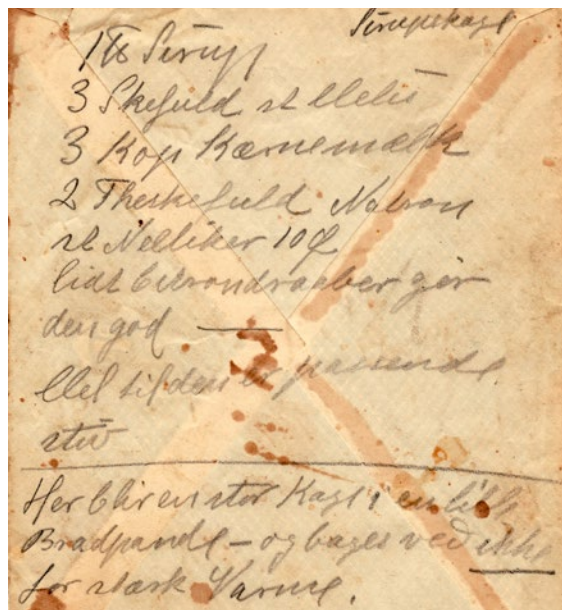 Sirupskage
1 ℔ Sirup
3 Skefuld st Melis
3 Kop Kærnemælk
2 Theskefuld Natron
st Nelliker 10 Ø
lidt Citrondraaber gør
den god
Mel til den er passende
stiv
Her blir en stor Kage i en lille
Bradpande - og bages ved ikke
for stærk Varme.